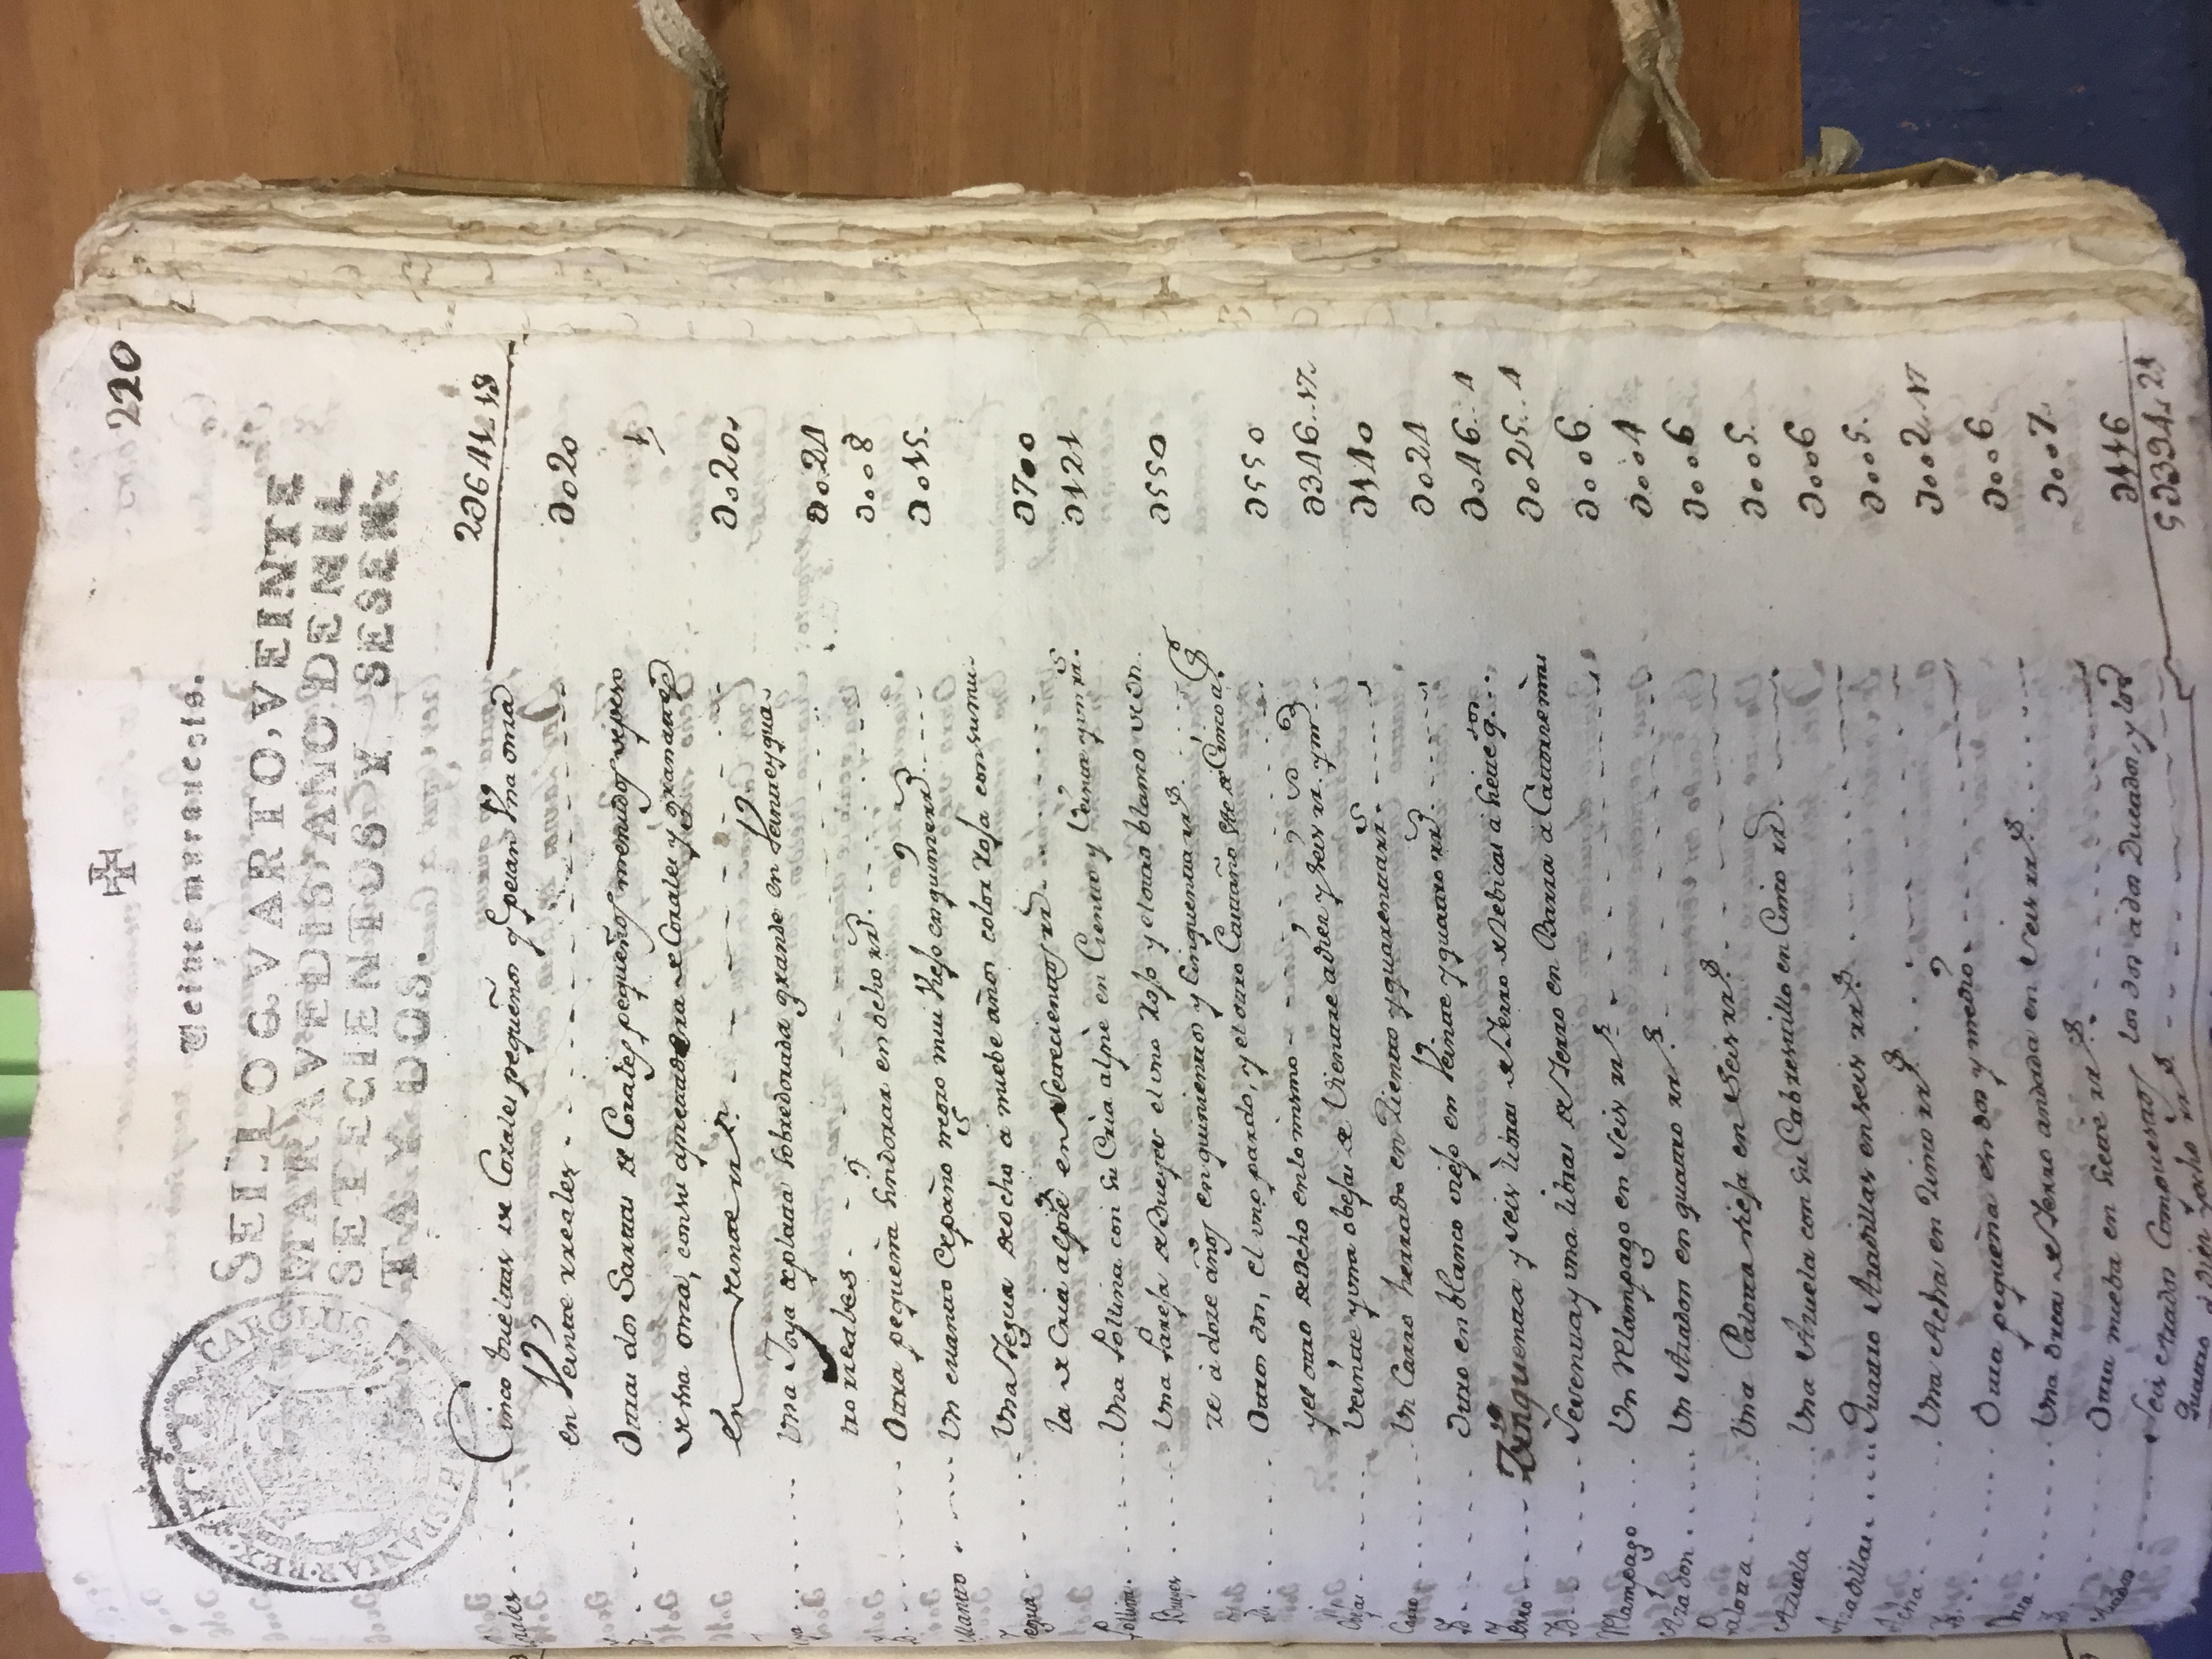 220
Veinte maravedis.
SELLO QVARTO, VEINTE
MARAVEDIS, AÑO DE MIL
SETECIENTOS Y SESEN-
TA Y DOS.
CAROLUS HISPANIAR·REX
2U641..18
Corales Cinco bueltas de Corales pequeños q.e pesan Vna onza
en Veinte rreales U020
D. Otras dos Sartas de Corales pequeños menudos de peso
de vna onza, con su apreadera de Corales y granates
en veinte rr.s U020
Joya Vna Joya de plata sobredorada grande en Veinte y qua
tro rreales U024
D. Otra pequeña sindorar en ocho rr.s U008
Manto Vn manto de paño negro mui viejo en quince rr.s U015
Yegua Vna Yegua de ocho a nuebe años color Roja con su mu
la de Cria al pie en Setecientos rr.s U700
Pollina Vna Pollina con su Cria al pie en Ciento y Veinte y un rr.s U121
Bueyes Vna Pareja de Bueyes el uno Rojo y el otro blanco de on
ze à doze años en quinientos y Cinquenta rr.s U550
D. Otros dos, el uno pardo, y el otro Castaño de Cinco a.s
y el otro de ocho en lo mismo U550
Obejas Veinte y una obejas de Vientre a diez y Seis rr.s y m.o U346..17
Carro Vn Carro herrado en Ziento y quarenta rr.s U140
D. Otro en blanco viejo en Veinte y quatro rr.s U024
Yerro Zinquenta y seis libras de Yerro de Rebicas a siete q.tos U046..4
D. Sesenta y una libras de Yerro en Barra a U025..4
Relampago Vn Relampago en Seis rr.s U006
Azadon Vn Azadon en quatro rr.s U004
Palona Vna Palona vieja en Seis rr.s U006
Azuela Vna Azuela con su Cabrestillo en Cinco rr.s U005
Azadillas Quatro Azadillas en seis rr.s U006
Acha Vna Acha en Zinco rr.s U005
D. Otra pequeña en dos y medio U002..17
Vna de Yerro andada en Seis rr.s U006
D. Otra nueba en Siete rr.s U007
Seis Arados Compuestos los dos a dos Ducados, y los
quatro a diez y ocho rr.s U116
5U394..24